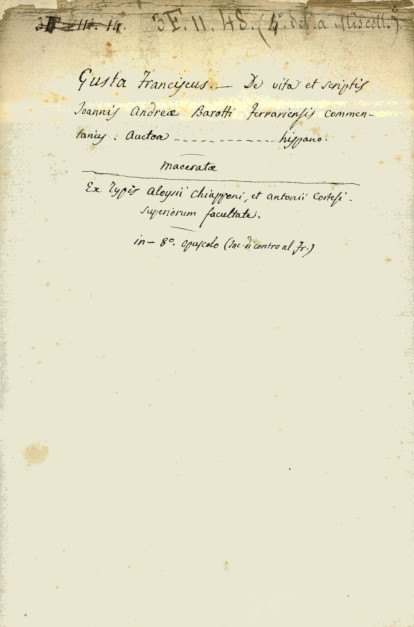 3F. 11. 14. 3F. 11. 48. (4° della Miscell.)
Gusta Franciscus. — De vita et scriptis
Joannis Andreæ Barotti Ferrariensis Commen-
tarius. Auctoa ------------ hispano.
Maceratæ
Ex Typis Aloysii Chiapponi, et Antonii Cortesi.
Superiorum facultate.
in-8°. opuscolo (Inc. di contro al Fr.)